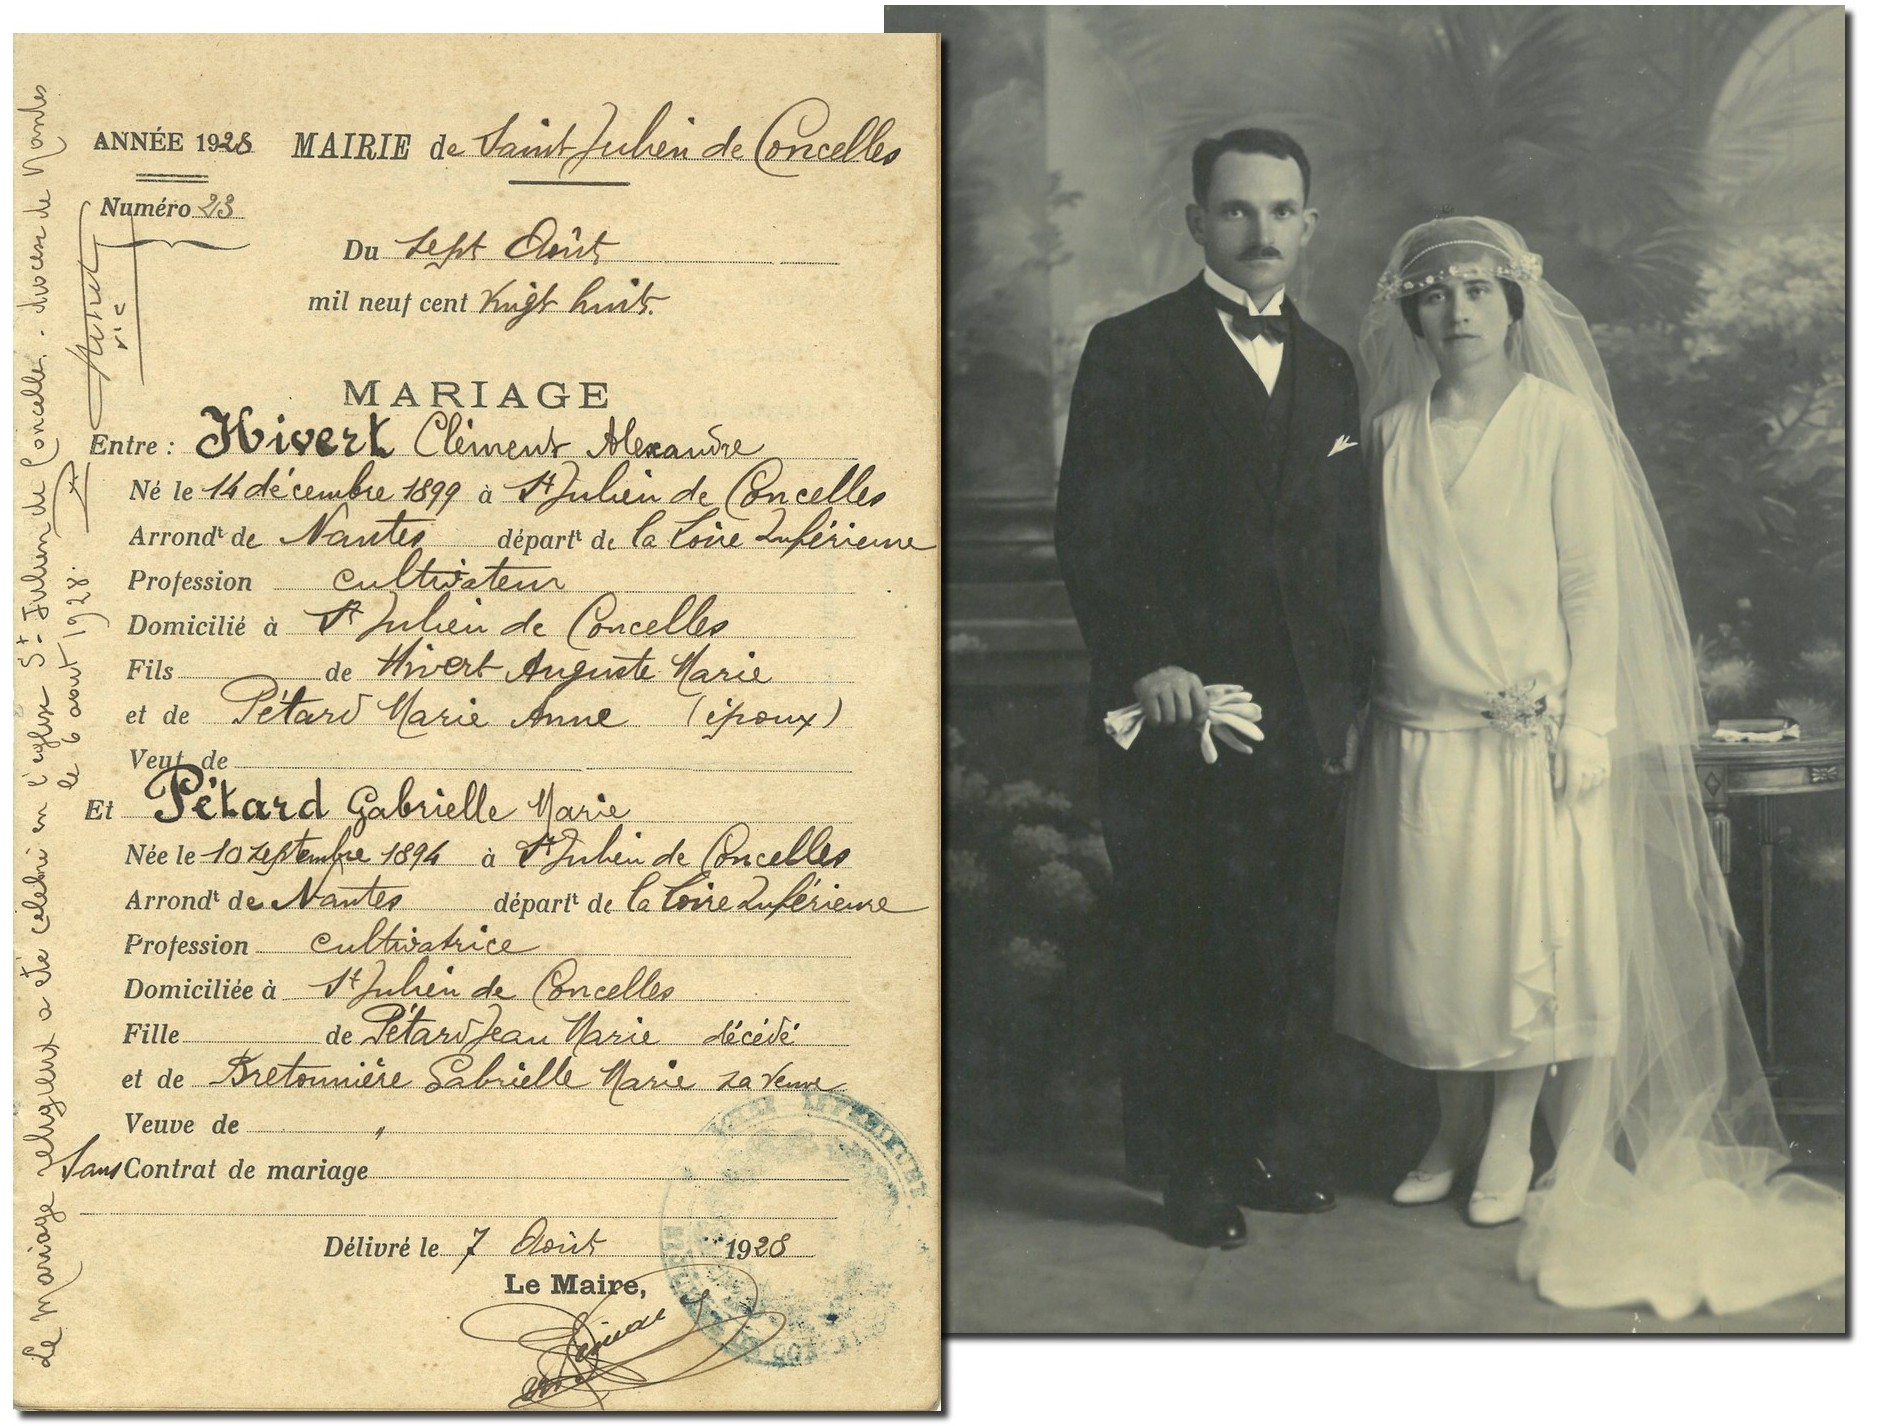 ANNÉE 1928 MAIRIE de Saint Julien de Concelles
Numéro 23
Du sept Août
mil neuf cent vingt huit.
MARIAGE
Entre : Hivert Clément Alexandre
Né le 14 décembre 1899 à St Julien de Concelles
Arrondt de Nantes départt de la Loire Inférieure
Profession cultivateur
Domicilié à St Julien de Concelles
Fils de Hivert Auguste Marie
et de Pétard Marie Anne (époux)
Veuf de
Et Pétard Gabrielle Marie
Née le 10 septembre 1894 à St Julien de Concelles
Arrondt de Nantes départt de la Loire Inférieure
Profession cultivatrice
Domiciliée à St Julien de Concelles
Fille de Pétard Jean Marie décédé
et de Bretonnière Gabrielle Marie sa veuve
Veuve de "
Sans Contrat de mariage
Délivré le 7 Août 1928
Le Maire,
Le Mariage religieux a été célébré en l'église St Julien de Concelles. diocèse de Nantes
le 6 aout 1928.
vic
LOIRE INFÉRIEURE